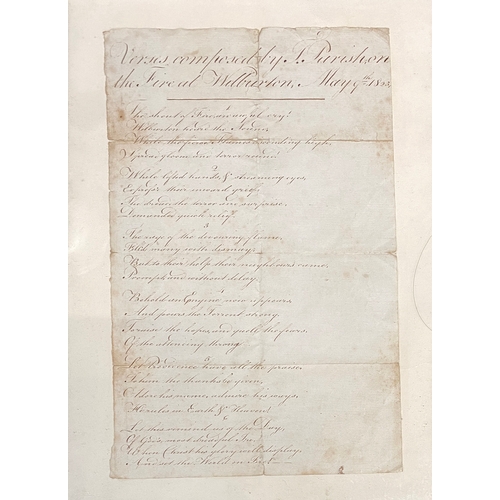 Verses, composed by J. Parish, on
the Fire at Wilburton, May 9th
The shout of Fire! an awful cry!
Wilburton heard the sound,
While the fierce Flames ascending high,
Spread gloom and terror round
While lifted hands, & streaming eyes,
Express their inward grief,
The dream, the terror and surprise,
Demanded quick relief.
3
The rage of the devouring flame,
Fill'd many with dismay;
But to their help their neighbours came,
Prompt, and without delay.
Behold an Engine now appears
And pours the torrent strong
To raise the hopes, and quell the fears,
Of the advancing throng
5
Let Providence have all the praise,
To him the thanks be given,
O bless his name, adore his ways
He rules in Earth & Heaven!
Let this remind us of the Day,
Of God's most dreadful Ire
When Christ his glory will display,
And set the World on Fire